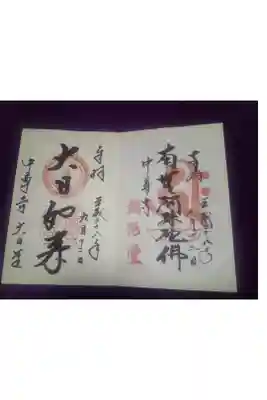 奉拝
平成十八年
九月十二日
南無阿弥陀佛
中尊寺
奉拝
平成十八年
九月十二日
大日如来
中尊寺 大日堂